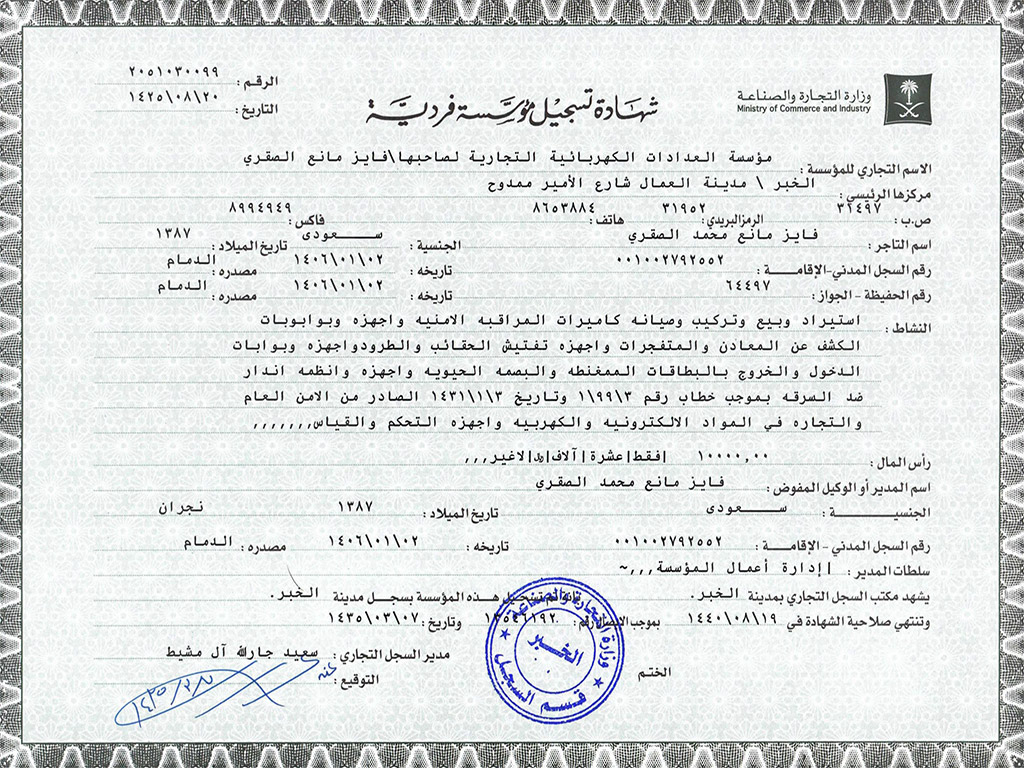 الرقم : ٢٠٥١٠٣٠٠٩٩
التاريخ : ١٤٢٥\٠٨\٢٠
شهادة تسجيل مؤسسة فردية
وزارة التجارة والصناعة
Ministry of Commerce and Industry
الاسم التجاري للمؤسسة : مؤسسة العدادات الكهربائية التجارية لصاحبها\فايز مانع الصقري
مركزها الرئيسي : الخبر \ مدينة العمال شارع الأمير ممدوح
ص.ب : ٣١٤٩٧ الرمز البريدي : ٣١٩٥٢ هاتف : ٨٦٥٣٨٨٤ فاكس : ٨٩٩٤٩٤٩
اسم التاجر : فايز مانع محمد الصقري الجنسية : سـعودى تاريخ الميلاد : ١٣٨٧
رقم السجل المدني-الإقامـة : ٠٠١٠٠٢٧٩٢٥٥٢ تاريخه : ١٤٠٦\٠١\٠٢ مصدره : الدمام
رقم الحفيظة - الجواز : ٦٤٤٩٧ تاريخه : ١٤٠٦\٠١\٠٢ مصدره : الدمام
النشاط : استيراد وبيع وتركيب وصيانه كاميرات المراقبه الامنيه واجهزه وبوابوبات
الكشف عن المعادن والمتفجرات واجهزه تفتيش الحقائب والطرودواجهزه وبوابات
الدخول والخروج بالبطاقات الممغنطه والبصمه الحيويه واجهزه وانظمه اندار
ضد السرقه بموجب خطاب رقم ٣\٩٩\١ وتاريخ ٣\١\١٤٣١ الصادر من الامن العام
والتجاره في المواد الالكترونيه والكهربيه واجهزه التحكم والقياس,,,,,,,
رأس المال : ١٠٠٠٠,٠٠ |فقط|عشرة|آلاف| |لاغير,,,
اسم المدير أو الوكيل المفوض : فايز مانع محمد الصقري
الجنسيـة : سـعودى تاريخ الميلاد : ١٣٨٧ نجران
رقم السجل المدني - الإقامـة : ٠٠١٠٠٢٧٩٢٥٥٢ تاريخه : ١٤٠٦\٠١\٠٢ مصدره : الدمام
سلطات المدير : |إدارة أعمال المؤسسة,,,~
يشهد مكتب السجل التجاري بمدينة الخبر. بأنه تم تسجيل هذه المؤسسة بسجل مدينة الخبر.
وتنتهي صلاحية الشهادة في ١٤٤٠\٠٨\١٩ بموجب الإيصال رقم : وتاريخ : ١٤٣٥\٠٣\٠٧
مدير السجل التجاري : سعيد جارالله آل مشيط
الختم
التوقيع :
عنه
وزارة التجارة والصناعة
الخبر
قسم السجل